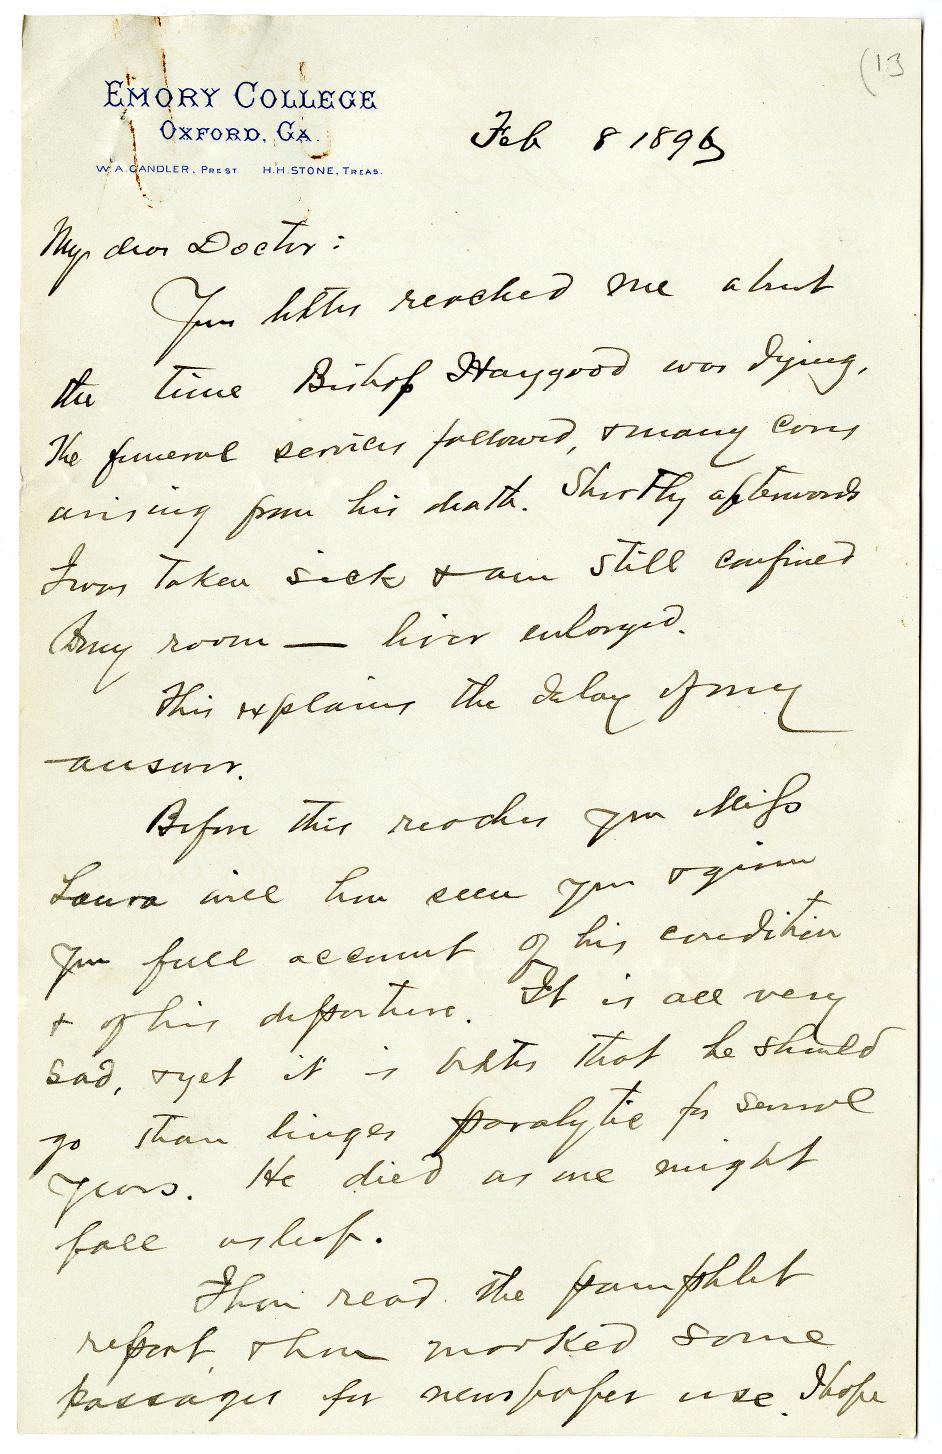 (13
EMORY COLLEGE
OXFORD, GA.
W. A. CANDLER, PREST    H. H. STONE, TREAS.
Feb 8 1896
My dear Doctor:
Your letter reached me about
the time Bishop Haygood was dying.
The funeral services followed, & many cares
arising from his death. Shortly afterwards
I was taken sick & am still confined
to my room — liver enlarged.
This explains the delay of my
answer.
Before this reaches you Miss
Laura will have seen you & given
you full account of his condition
& of his departure. It is all very
sad, & yet it is better that he should
go than linger paralytic for several
years. He died as one might
fall asleep.
I have read the pamphlet
report, & have marked some
passages for newspaper use. I hope